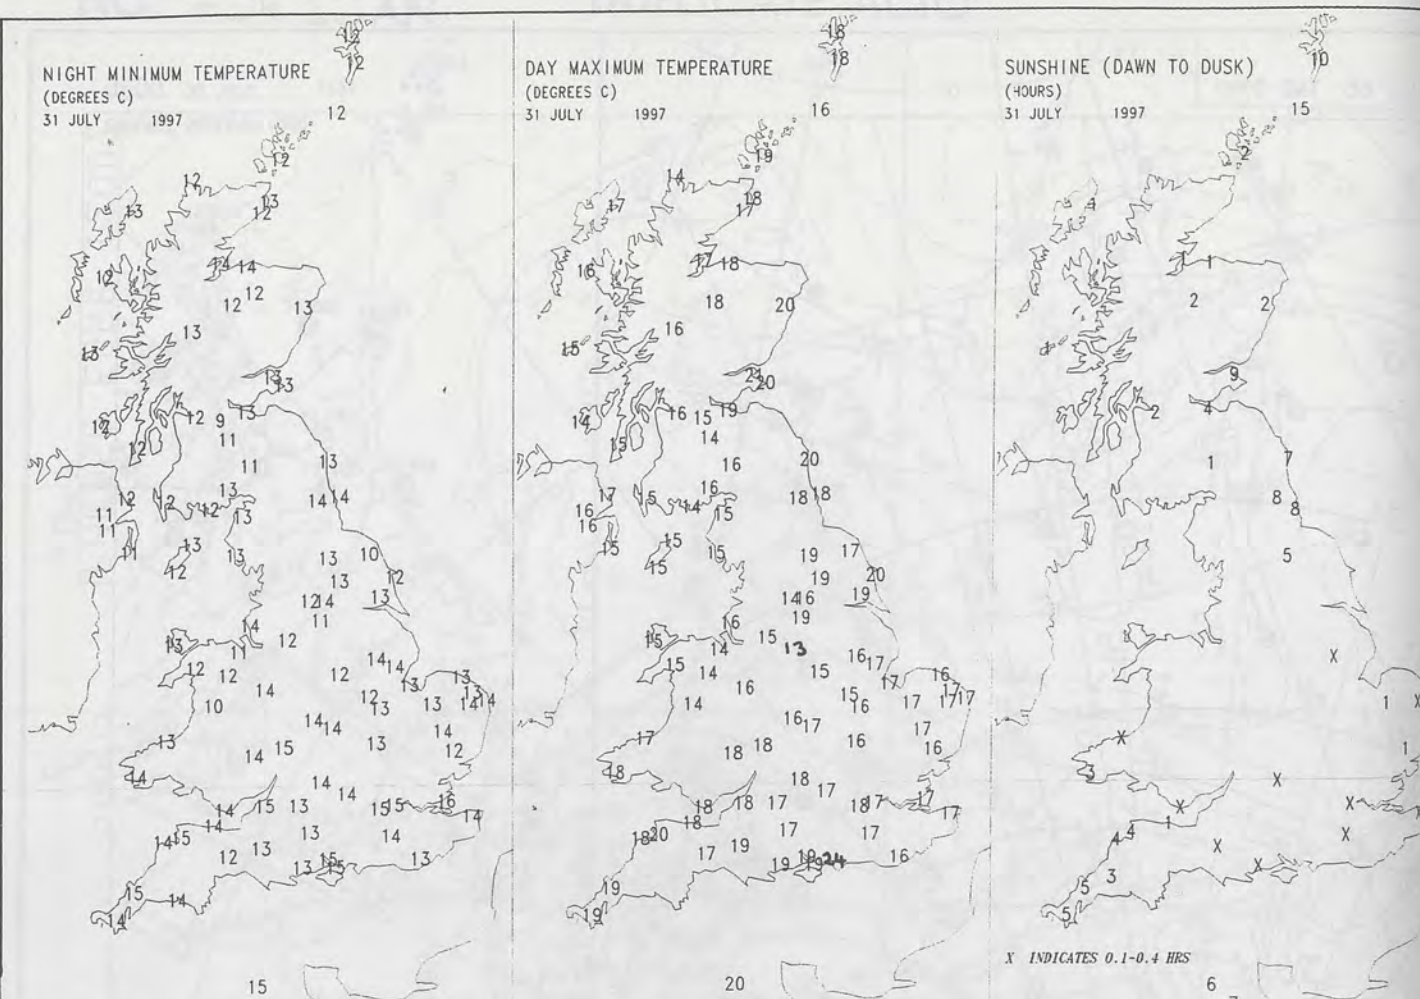 NIGHT MINIMUM TEMPERATURE
(DEGREES C)
31 JULY 1997
12
12
12
12
12
13
13
12
12
14 14
12
12 13
13
13
13
13
12
12 9 13
11
12
11 13
13
14 14
12 12 12
11 13
11
11 13 13 13 10
12
13 12
12 14 13
11
14
13 12
11
12 12 12 14 14
13
14 12 13 13
10 13 13 14 14
14 14
13 15 13 14
14 12
14 14 14
14 15 13 15 15 16
14 14
14 15 13 14
12 13
15 13
13 15
15
14 14
15
DAY MAXIMUM TEMPERATURE
(DEGREES C)
31 JULY 1997
18
18
16
19
14
17 18
17
16 17 18
18 20
16
15
21
20
14 16 15 19
14
15
16 20
16
17 15 14 18 18
16 15
16
15 15 15 19 17
15
19 20
14 16 19
16 19
15 14 15 13
15 14 15 16 17
16
14 16 15 16 17 17 17 17
16 17 17
17 18 18 16 16
18 18 17
18 18 17 18 17 17
18 17
18 20 17 17
17 19
19 19 19 24 16
19
19
20
SUNSHINE (DAWN TO DUSK)
(HOURS)
31 JULY 1997
10
15
2
1
1 1
2 2
1
9
2 4
1 7
8
8
5
X
1 X
X 1
3 X
X X
4 4 1 X
X
X
5 3
5
X INDICATES 0.1-0.4 HRS
6